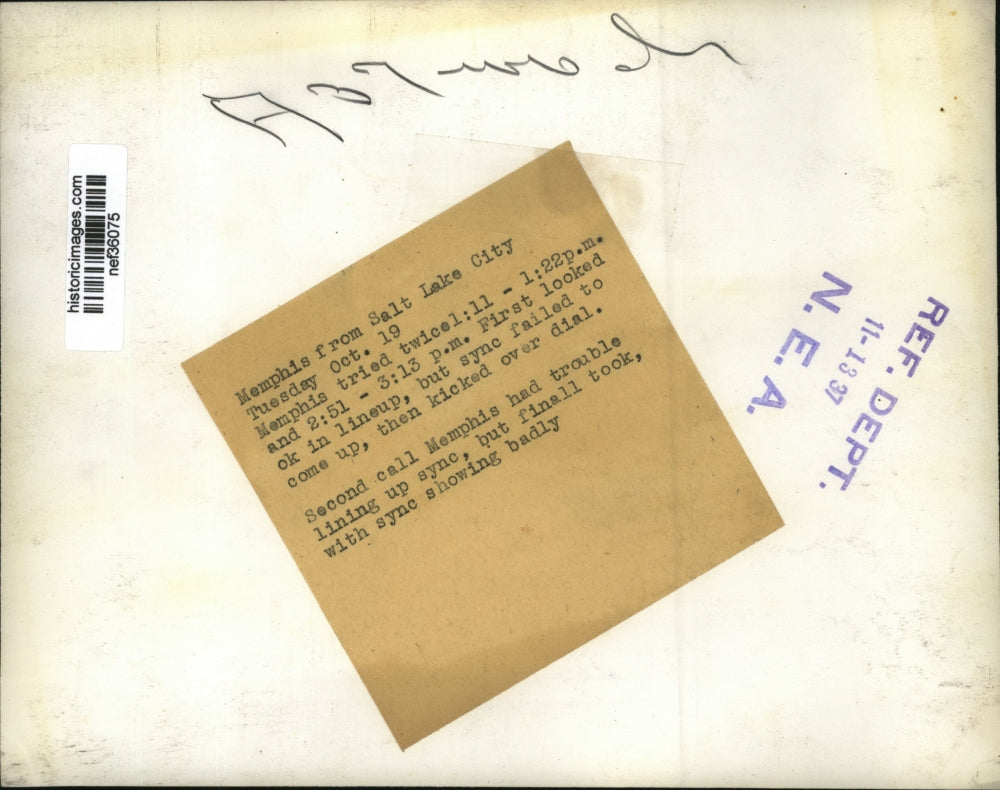 historicimages.com
nef36075
Memphis from Salt Lake City
Tuesday Oct. 19
Memphis tried twice1:11 - 1:22p.m.
and 2:51 - 3:13 p.m. First looked
ok in lineup, but sync failed to
come up, then kicked over dial.
Second call Memphis had trouble
lining up sync, but finall took,
with sync showing badly
REF. DEPT.
11-1337
N. E. A.